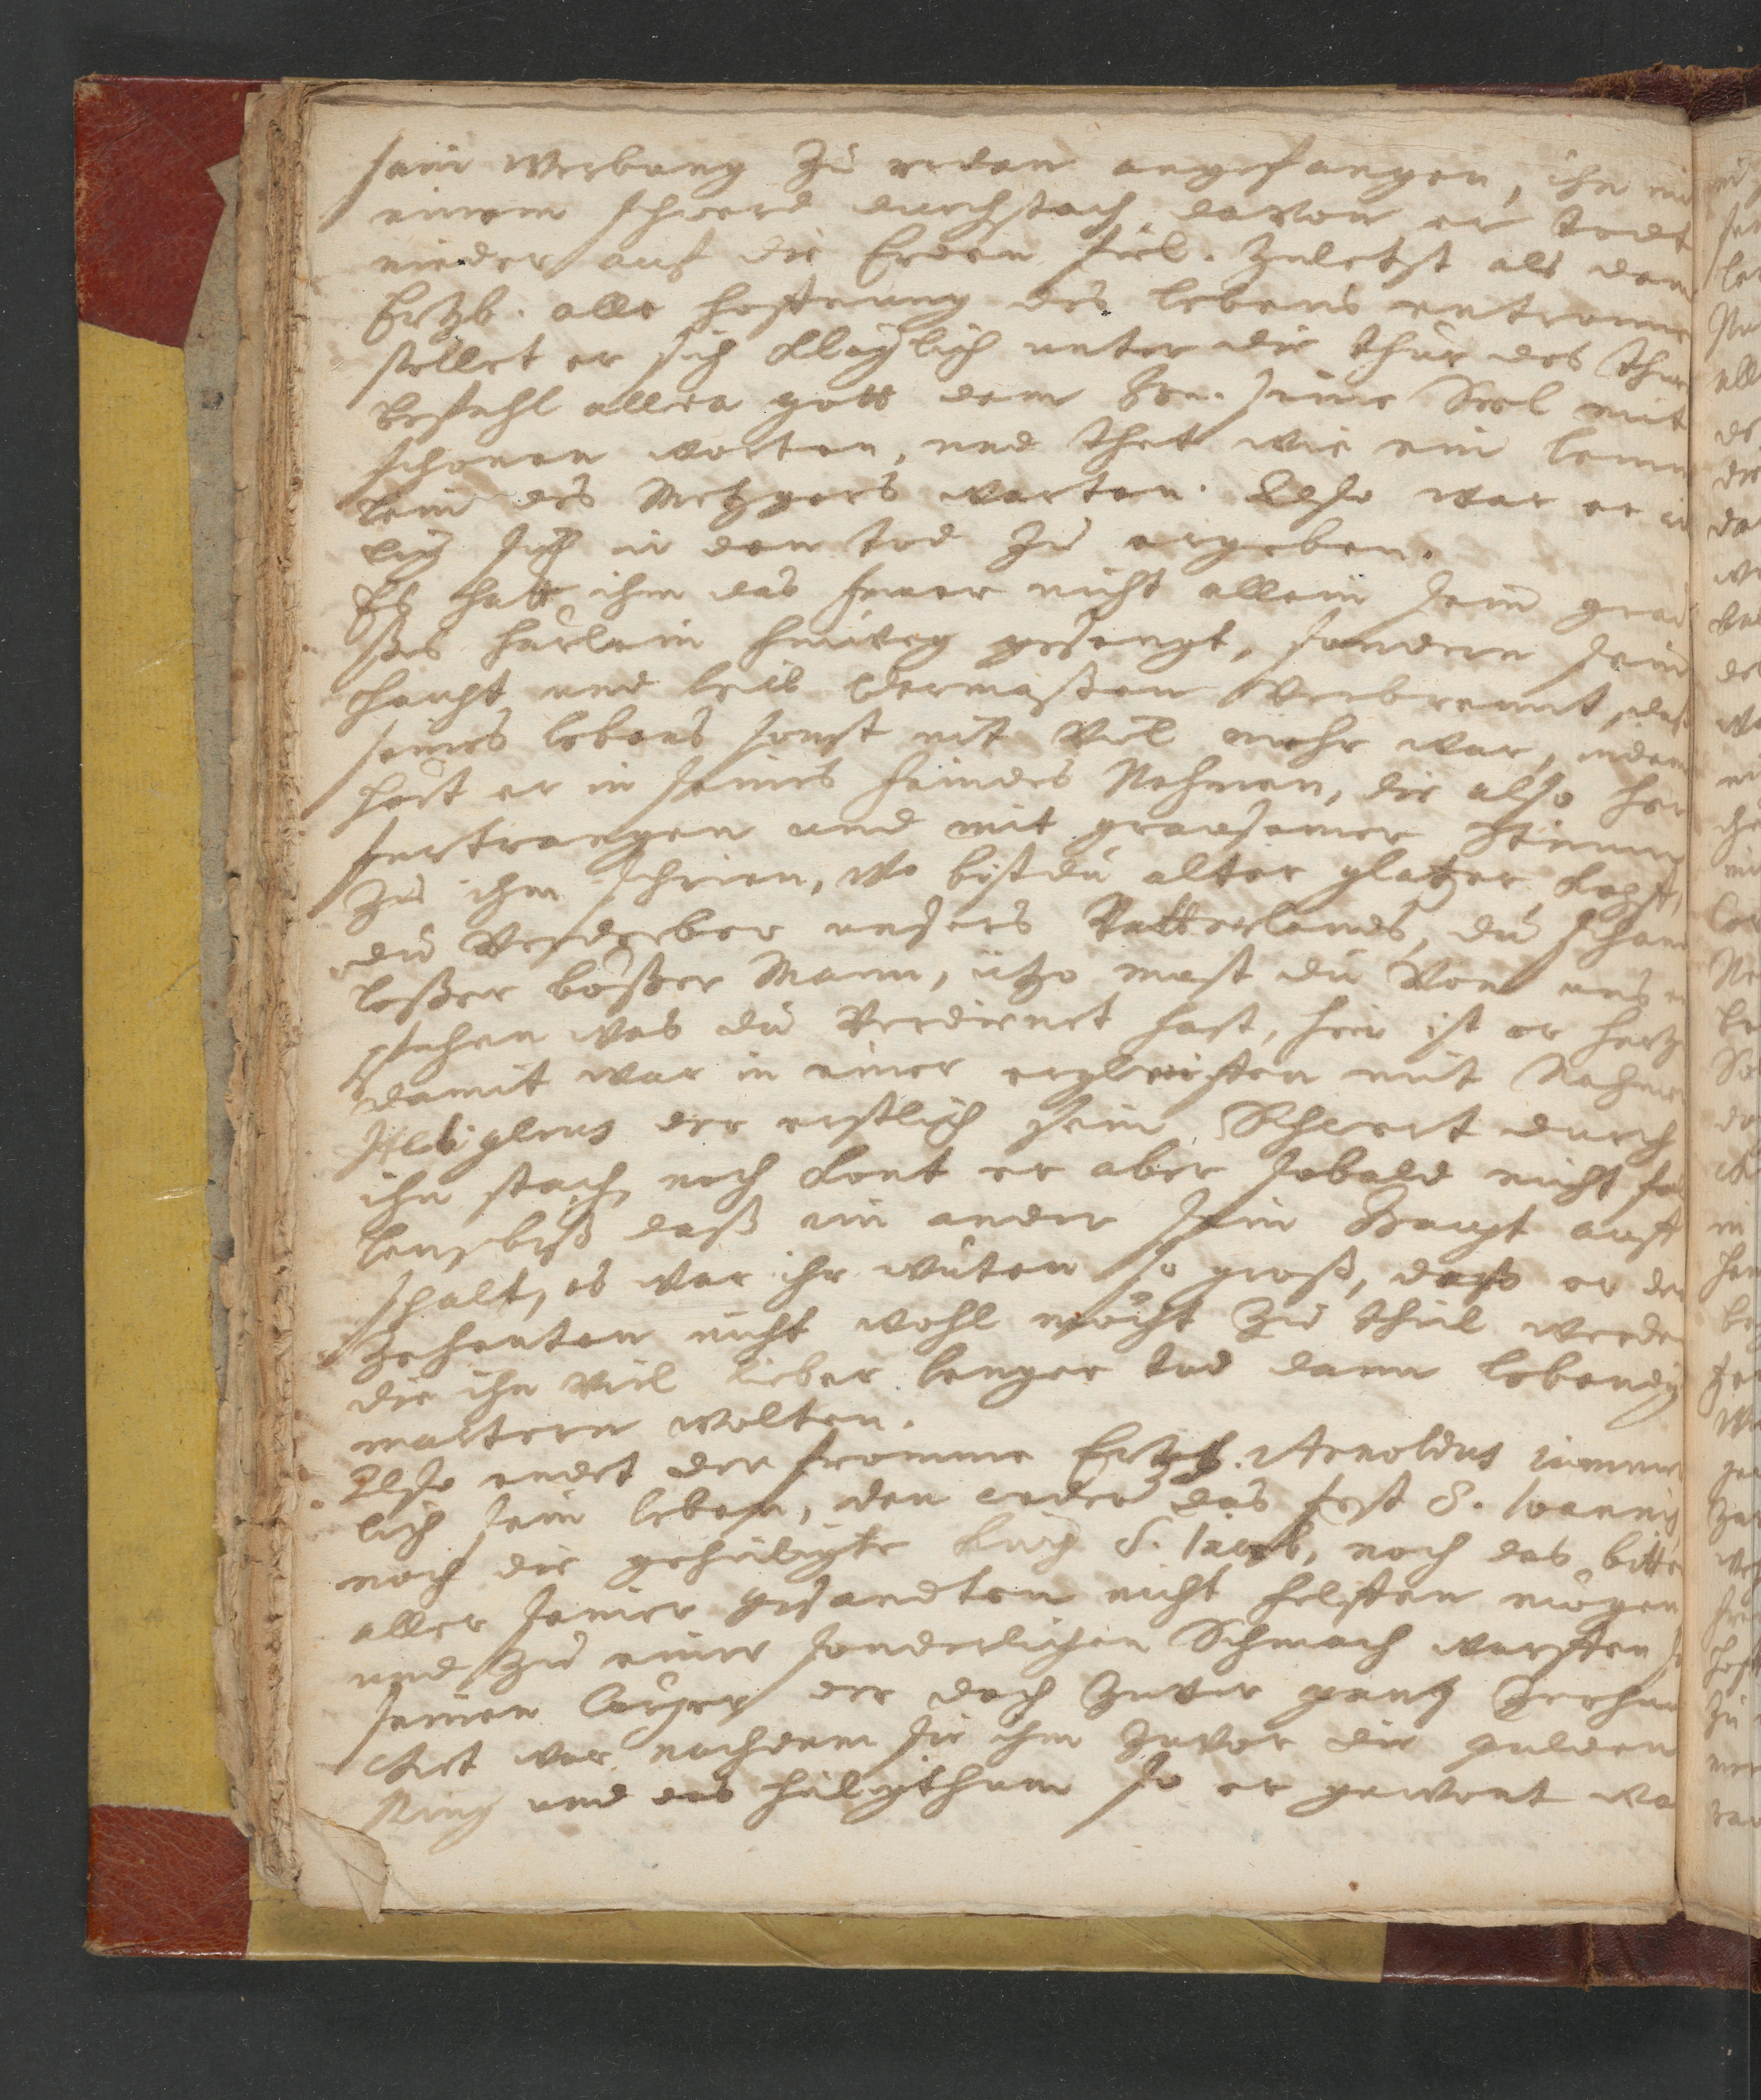 sein werbung zu reden angefangen, ihn mi
einem schwerd durchstach davon er todt
nieder auf die Erden fiel. Zuletzt als dem
Ertzb. alle hoffnung des lebens entronne
stellet er sich kläglich unter die thür des thur
befahl allda gott dem Hrn. seine Seel mit
schönen worten, und thet wie ein lemm
lein des Metzgers warten. Also war er
lig sich in den tod zu ergeben.
Es hatt ihm das feuer nicht allein sein gra
ßes härlein hinweg gesengt, sondern sein
haupt und leib dermaßen verbrennt, daß
seines lebens sonst nit viel mehr war, indem
hört er in seines feindes Nahmen, die also her
fürtrangen und mit grausamer stimm
zu ihm schrien, wo bistdu alter glatzer kopff,
du Verderber unsers Vatterlands, du scham
loßer bößer Mann, itzo must du von uns e
pfahen was du verdienet hast, hin ist er hertz
damit war in einer ergleiffen mit Nahme
der erstlich sein Schwert durch
ihn stach, noch kont er aber sobald nicht fal
len, biß daß ein ander sein Haupt auff
schalt, es war ihr wüten so groß, daß er de
zehenten nicht wohl mocht zu theil werde
die ihn viel lieber lenger tod dann lebendig
martern wolten.
Also endet der fromme Ertzb. Arnoldus iämmer
lich sein leben, den weder das fest S. Ioannis
noch die geheiligte kirch S. Iacob, noch das bitte
aller seiner gesandten nicht helffen mögen
und zu einer sonderlichen Schmach warffen s
seinen Cörper der doch zuvor gantz zerha
cket war nachdem sie ihm zuvor die gulden
Ring und das heiligthum so er gewont wa